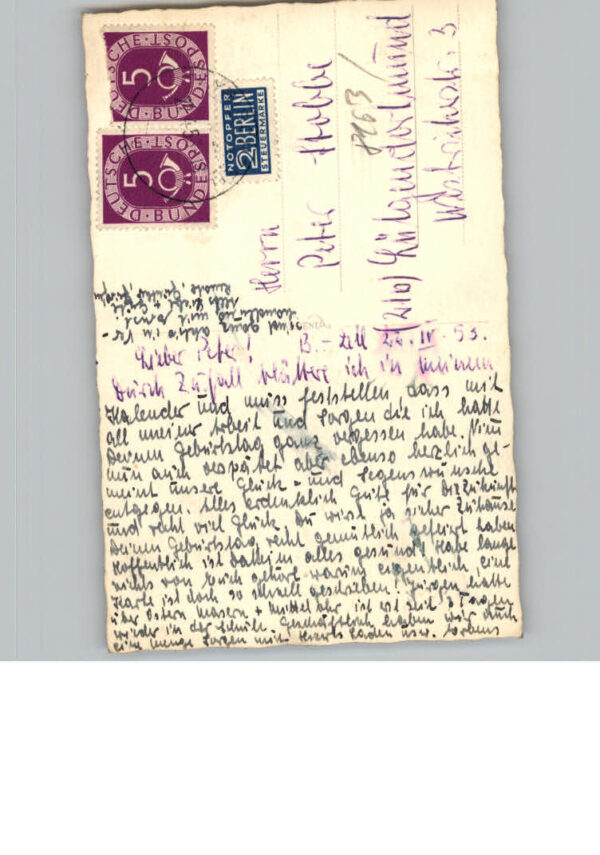 DEUTSCHE · BUNDESPOST
5
DEUTSCHE · BUNDESPOST
5
NOTOPFER
2 BERLIN
STEUERMARKE
Herrn
Peter
8263
Westricherstr. 3
Lieber Peter! B.-Zell 22. IV. 53.
Durch Zufall blättere ich in meinem
Kalender und muss feststellen, dass mit
all meiner Arbeit und Sorgen die ich hatte
Deinen Geburtstag ganz vergessen habe. Nimm
nun auch verspätet aber ebenso herzlich ge-
meint unsere Glück- und Segenswünsche
entgegen. Alles erdenklich Gute für die Zukunft
und recht viel Glück. Du wirst ja sicher Zuhause
Deinen Geburtstag recht gemütlich gefeiert haben.
Hoffentlich ist daheim alles gesund! Habe lange
nichts von Euch gehört warum eigentlich, eine
Karte ist doch so schnell geschrieben! Jürgen hatte
über Ostern Masern + Mittelohr, ist erst seit 3 Tagen
wieder in der Schule. Geschäftlich haben wir auch
eine Menge Sorgen mit laden usw.